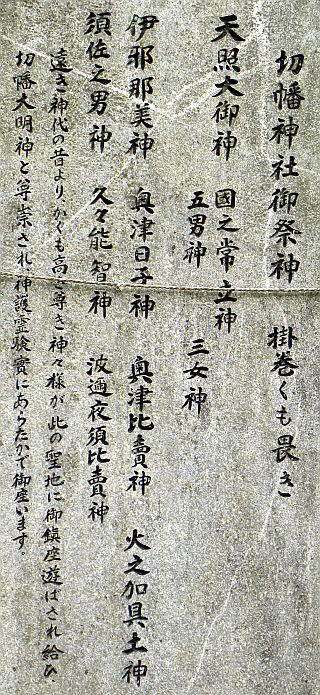 切幡神社御祭神　掛巻くも畏き
天照大御神　國之常立神
五男神　三女神
伊邪那美神　奥津日子神　奥津比賣神　火之加具土神
須佐之男神　久々能智神　波邇夜須比賣神
遠き神代の昔よりかくも高き尊き神々様が此の聖地に御鎮座遊ばされ給ひ
切幡大明神と尊崇され神護霊験實にあらたかで御座います。